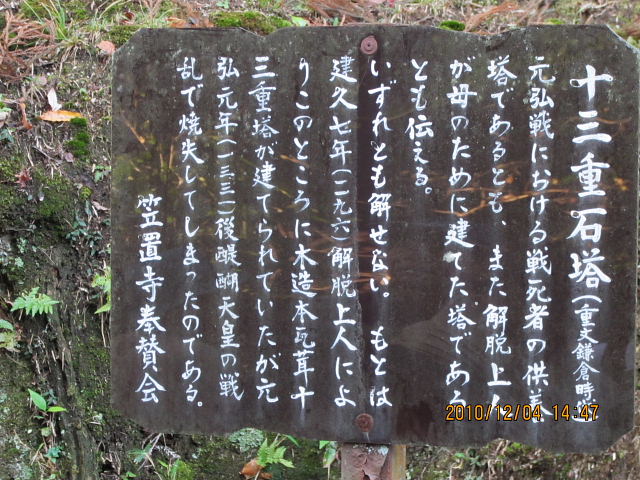 十三重石塔(重文鎌倉時代)
元弘戦における戦死者の供養
塔であるとも、また解脱上人
が母のために建てた塔である
とも伝える。
いずれとも解せない。 もとは
建久七年(一一九六)解脱上人によ
りこのところに木造本瓦茸十
三重塔が建てられていたが元
弘元年(一三三一)後醍醐天皇の戦
乱で焼失してしまったのである。
笠置寺奉賛会
2010/12/04 14:47